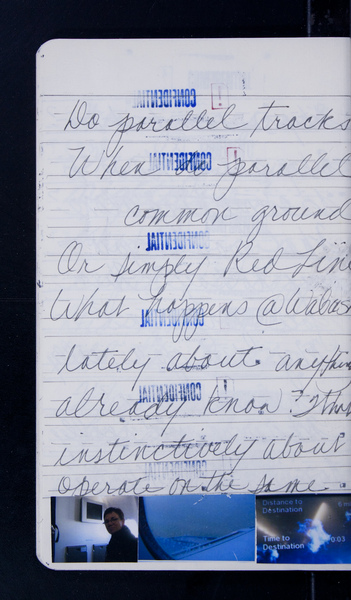 CONFIDENTIAL
Do parallel tracks
CONFIDENTIAL
When parallel
common ground
CONFIDENTIAL
Or simply Red Line
What happens @Wabas
CONFIDENTIAL
lately about anythin
CONFIDENTIAL
already know? Thin
CONFIDENTIAL
instinctively about
CONFIDENTIAL
operate on the same
Distance to
Destination
6 mi
Time to
Destination
0:03